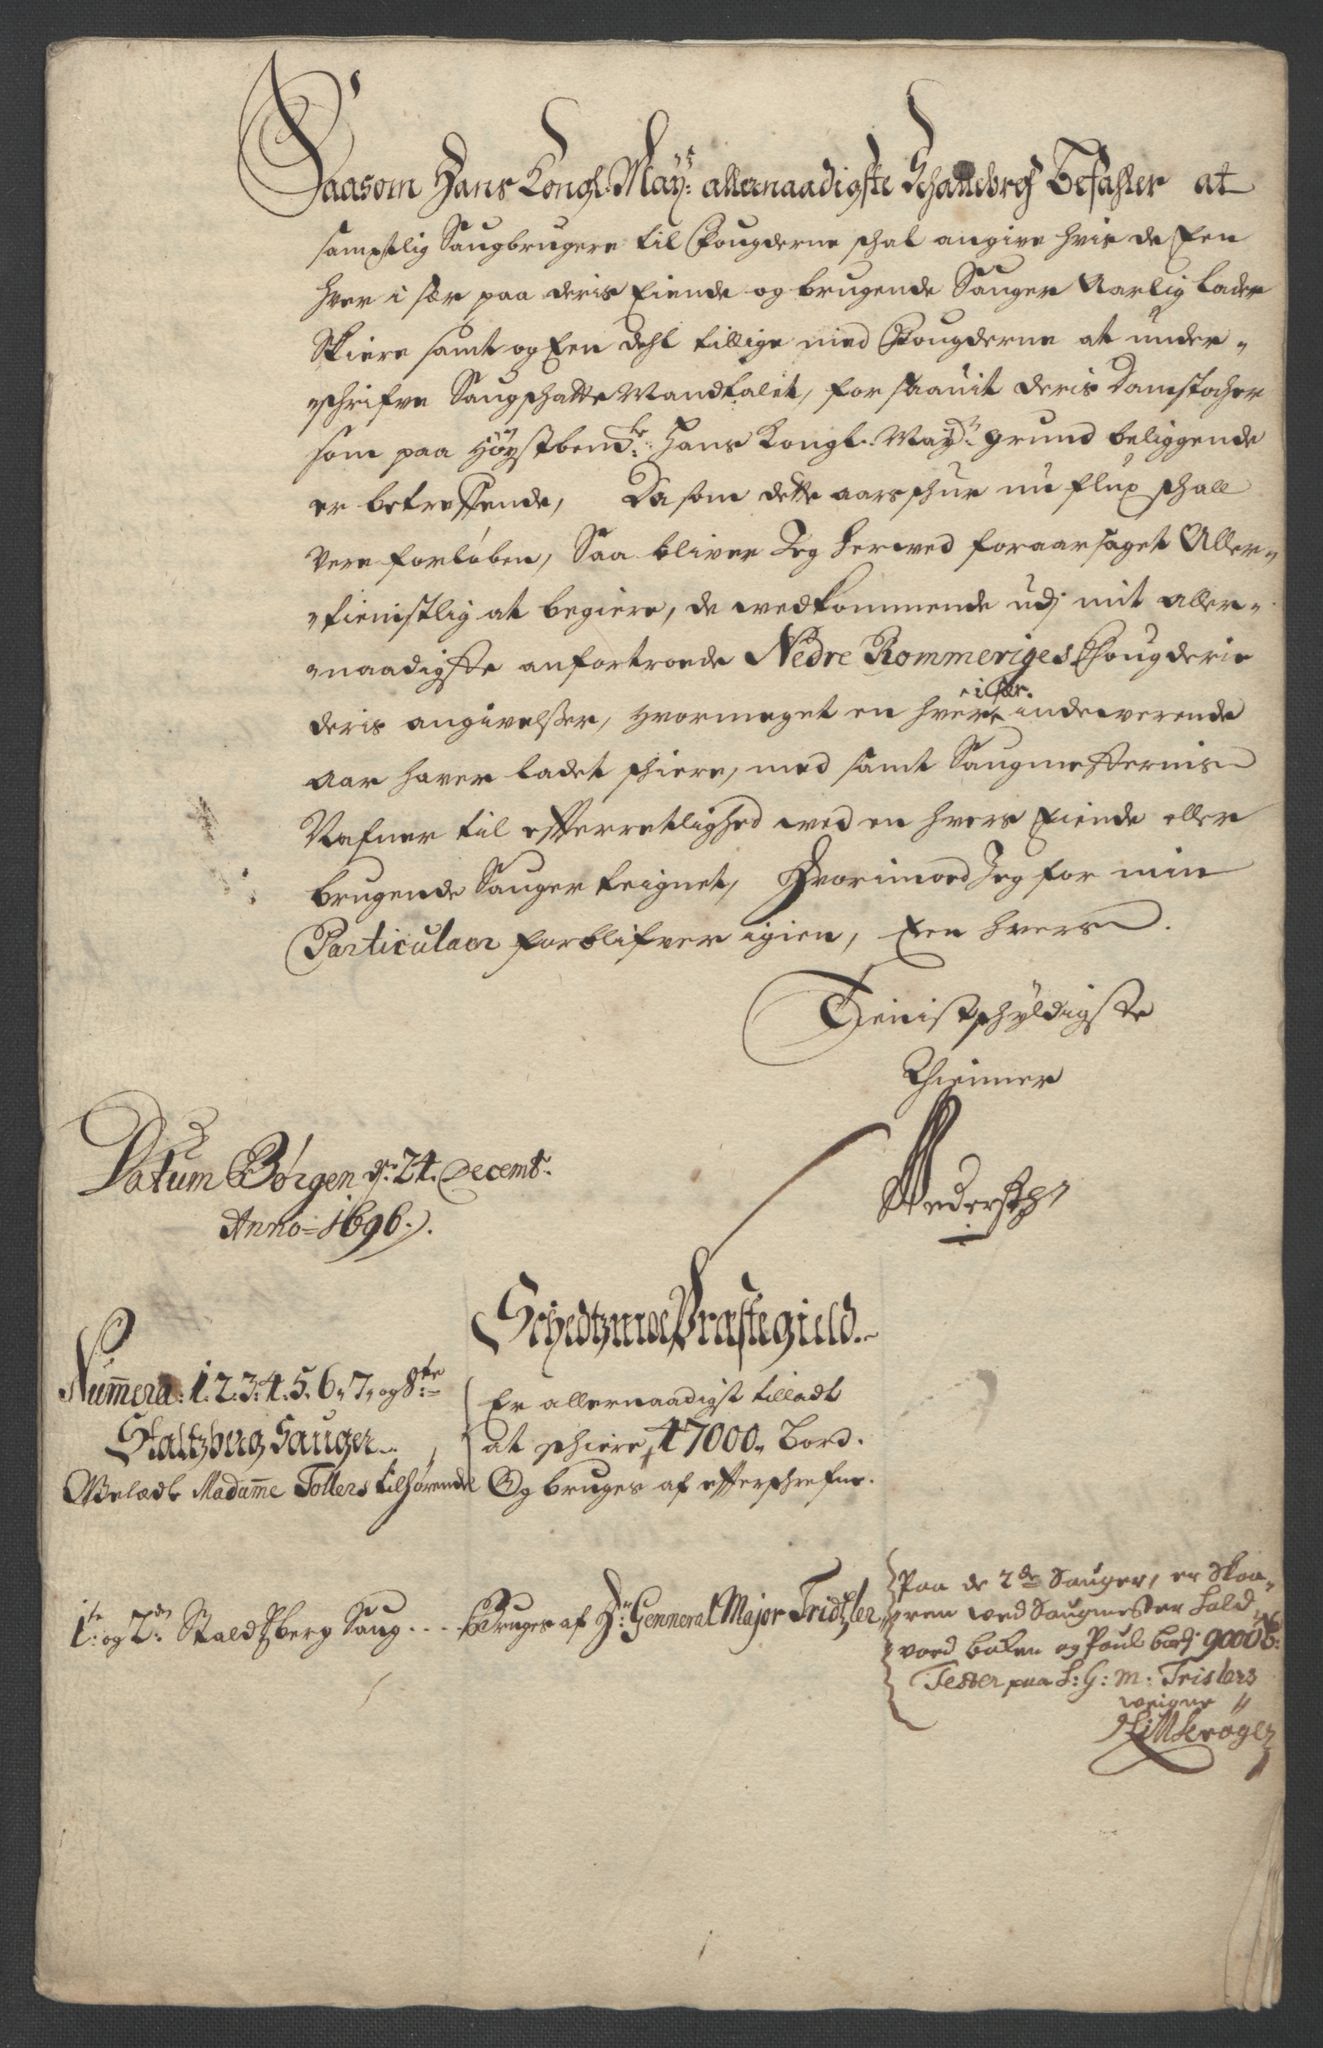 Saasom Hans Kongl: May: allernaadigste Schattebref Befahler at
samptlig Saugbrugere til Fougderne schal angive hvis de Een
hver i sær paa deris Eiende og brugende Sauger Aarlig lader
Skiere samt og Een dehl tillige med Fougderne at under-
schrifve Saugschatte Mandtalet, for saauit deris Damstocher
som paa Høystbemte: Hans Kongl. May: grund beliggende
er betreffende, Da som dette aarschur nu flux schall
vere forløben, Saa bliver Jeg herved foraarsaget Aller-
tienistlig at begiere, de vedkommende udj mit aller-
naadigste anfortroede Nedre Rommeriges Fougderie
deris angivelser, hvormeget en hver i sær. indeverende
Aar haver ladet schiere, med samt Saugmesternis
Nafner til efterretlighed ved en hvers Eiende eller
brugende Sauger teignet, Hvorimoed Jeg for min
Particulaer forblifver igien, Een hvers.
Tienistschyldigste
Thienner
Datum Børgen d: 24. Decemb:
Anno 1696.
Schedtzmoe Præstegield.
Numera: 1. 2. 3. 4. 5. 6. 7. og 8te
Staltzberg Sauger
Welædle Madamme Tollers tilhørende
Er allernaadigst tilladt
at schiere 47000 Bord.
Og bruges af efterschrefne.
1te og 7de Staldtzberg Saug.... Bruges af Hr: Genneral Major Tridtzler
Paa de 2de Sauger, er Skaa-
ren ved Saugmester Hald-
vord backen og Poul 9000 b:
Tester paa H: G: M: Trislers
veigne